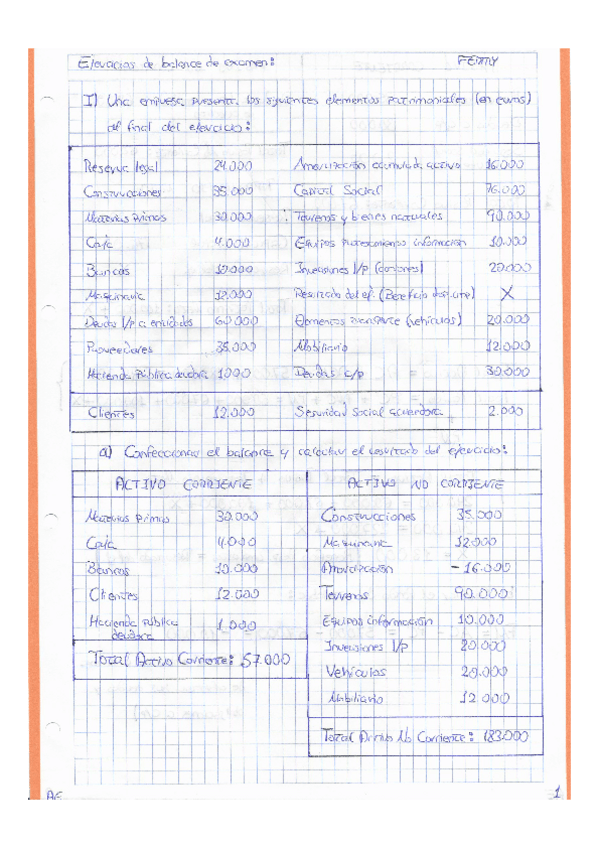 Ejercicios de balance de examen:
I) Una empresa presenta los siguientes elementos patrimoniales (en euros)
al final del ejercicio:
Reserva legal 24.000 Amortización acumulada activo 16.000
Construcciones 35.000 Capital Social 76.000
Materias Primas 30.000 Terrenos y bienes naturales 90.000
Caja 4.000 Equipos procesamiento información 10.000
Bancos 10.000 Inversiones l/p 20.000
Maquinaria 12.000 Resultado del ej. (Beneficio X
Deudas l/p 60.000 Elementos transporte (vehículos) 20.000
Proveedores 35.000 Mobiliario 12.000
Hacienda Pública deudora 1000 Deudas c/p 30.000
Clientes 12.000 Seguridad Social acreedora 2.000
a) Confeccionar el balance y calcular el resultado del ejercicio:
ACTIVO CORRIENTE
Materias Primas 30.000
Caja 4.000
Bancos 10.000
Clientes 12.000
Hacienda Pública
deudora 1.000
Total Activo Corriente: 57.000
ACTIVO NO CORRIENTE
Construcciones 35.000
Maquinaria 12.000
Amortización - 16.000
Terrenos 90.000
Equipos información 10.000
Inversiones l/p 20.000
Vehículos 20.000
Mobiliario 12.000
Total Activo No Corriente: 183.000
1